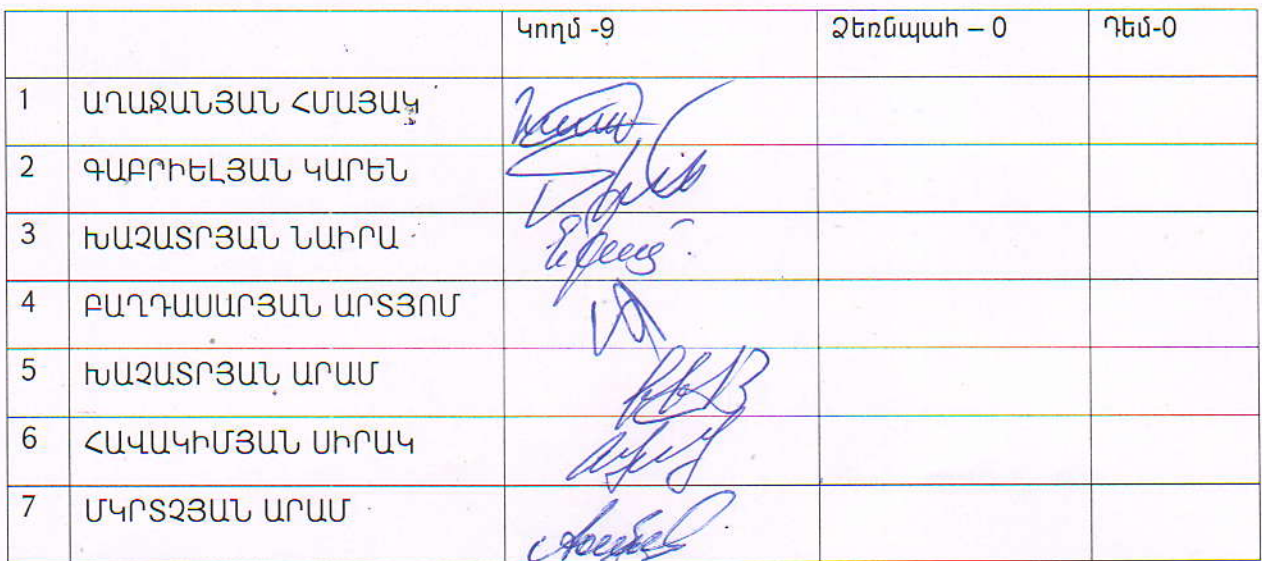 Կողմ -9 Ձեռնպահ – 0 Դեմ-0
1 ԱՂԱՋԱՆՅԱՆ ՀՄԱՅԱԿ
2 ԳԱԲՐԻԵԼՅԱՆ ԿԱՐԵՆ
3 ԽԱՉԱՏՐՅԱՆ ՆԱԻՐԱ
4 ԲԱՂԴԱՍԱՐՅԱՆ ԱՐՏՅՈՄ
5 ԽԱՉԱՏՐՅԱՆ ԱՐԱՄ
6 ՀԱՎԱԿԻՄՅԱՆ ՍԻՐԱԿ
7 ՄԿՐՏՉՅԱՆ ԱՐԱՄ